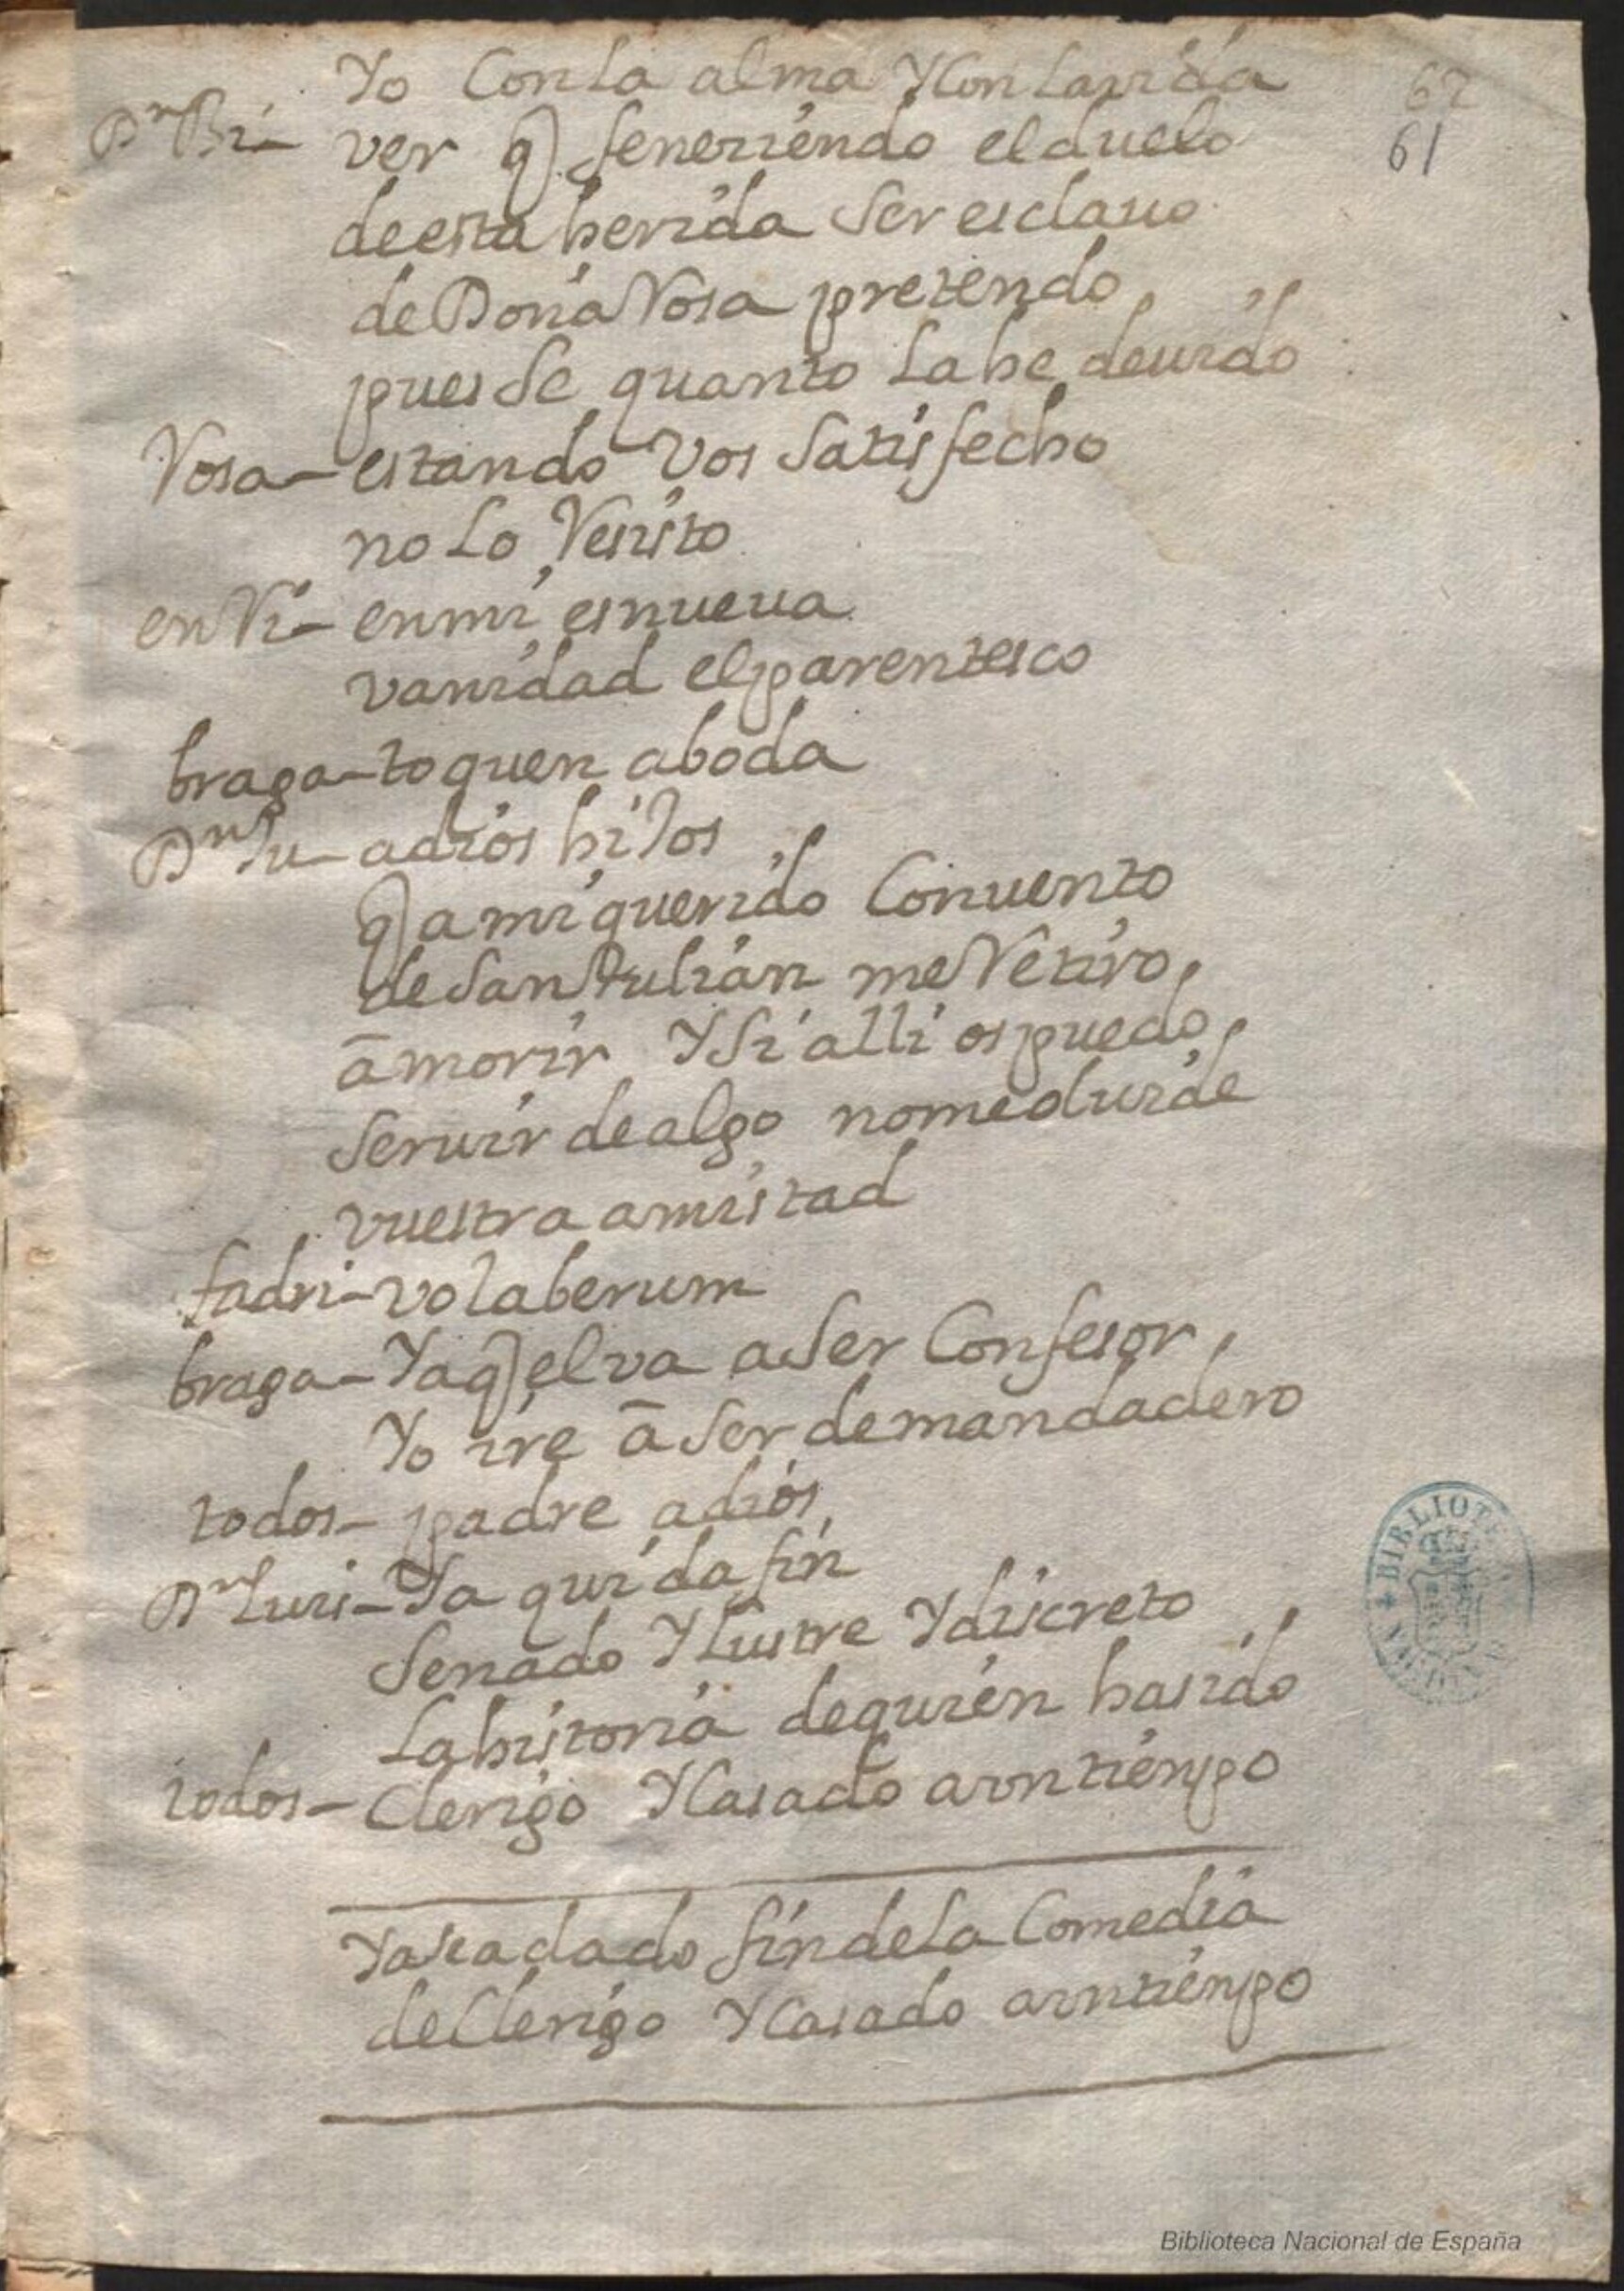 Yo Con La alma Y Con La vida
67
61
Dn Bi- ver q feneziendo el duelo
de esta herida Ser esclavo
de Dona Rosa pretendo,
pues Se quanto La he deuido
Rosa- estando Vos Satisfecho
no Lo Resisto
enRi- en mi es nueua
vanidad el parentesco
braga- toquen a boda
Dn Ju- adios hijos
q a mi querido Conuento
de San Julian me Retiro,
a morir Y Si alli os puedo,
Seruir de algo no me oluide
vuestra amistad
fadri- volaberum
braga- Ya q el va a Ser Confesor,
Yo ire a Ser demandadero
todos- padre adios,
Dn Luis- Ya qui da fin
Senado Y Lustre Y discreto
La historia de quien ha sido
todos- Clerigo Y Casado a vn tienpo
Ya Sea dado fin de La Comedia
de Clerigo Y Casado a vn tienpo
BIBLIOTECA NACIONAL
Biblioteca Nacional de España